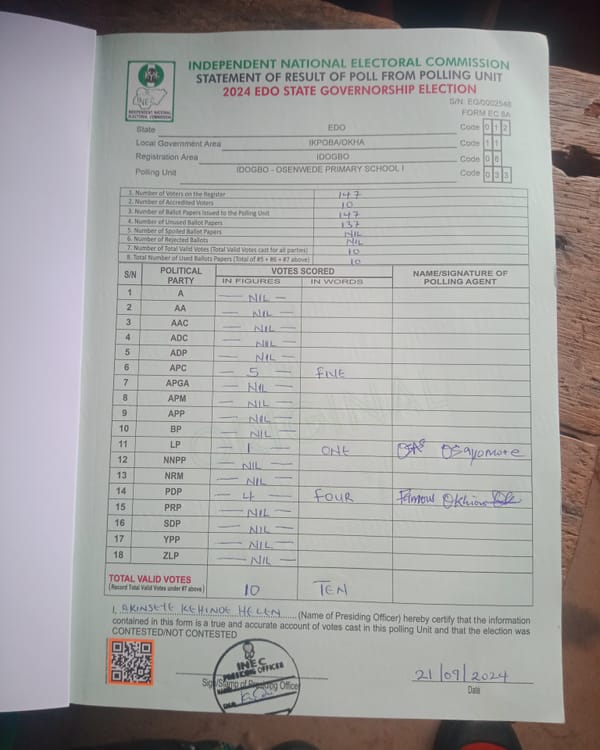 INDEPENDENT NATIONAL ELECTORAL COMMISSION
STATEMENT OF RESULT OF POLL FROM POLLING UNIT
2024 EDO STATE GOVERNORSHIP ELECTION
INEC
INDEPENDENT NATIONAL ELECTORAL COMMISSION
S/N: EG/0002548
FORM EC 8A
State EDO Code 0 1 2
Local Government Area IKPOBA/OKHA Code 1 1
Registration Area IDOGBO Code 0 6
Polling Unit IDOGBO - OSENWEDE PRIMARY SCHOOL I Code 0 3 3
1. Number of Voters on the Register 147
2. Number of Accredited Voters 10
3. Number of Ballot Papers Issued to the Polling Unit 147
4. Number of Unused Ballot Papers 137
5. Number of Spoiled Ballot Papers NIL
6. Number of Rejected Ballots NIL
7. Number of Total Valid Votes (Total Valid Votes cast for all parties) 10
8. Total Number of Used Ballots Papers (Total of #5 + #6 + #7 above) 10
S/N POLITICAL PARTY VOTES SCORED NAME/SIGNATURE OF POLLING AGENT
IN FIGURES IN WORDS
1 A — NIL —
2 AA — NIL —
3 AAC — NIL —
4 ADC — NIL —
5 ADP — NIL —
6 APC — 5 — FIVE
7 APGA — NIL —
8 APM — NIL —
9 APP — NIL —
10 BP — NIL —
11 LP — 1 — ONE Osayomore
12 NNPP — NIL —
13 NRM — NIL —
14 PDP — 4 — FOUR Famous
15 PRP — NIL —
16 SDP — NIL —
17 YPP — NIL —
18 ZLP — NIL —
TOTAL VALID VOTES 10 TEN
(Record Total Valid Votes under #7 above)
I, AKINSEYE KEHINDE HELEN (Name of Presiding Officer) hereby certify that the information
contained in this form is a true and accurate account of votes cast in this polling Unit and that the election was
CONTESTED/NOT CONTESTED
INEC
PRESIDING OFFICER
Sign/Stamp of Presiding Officer
21/09/2024
Date